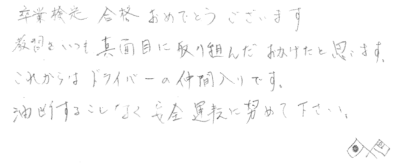 卒業検定 合格 おめでとうございます
教習をいつも真面目に取り組んだおかげだと思います。
これからはドライバーの仲間入りです。
油断することなく安全運転に努めて下さい。